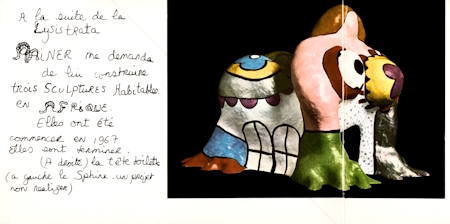 A la suite de la
Lysistrata
RAINER me demanda
de lui construire
TROIS SCULPTURES Habitables
EN AFRIQUE
Elles ont été
commencer en 1967
Elles sont terminer.
(A droite) la tête toilette
(a gauche le Sphinx. un projet
non realizer)